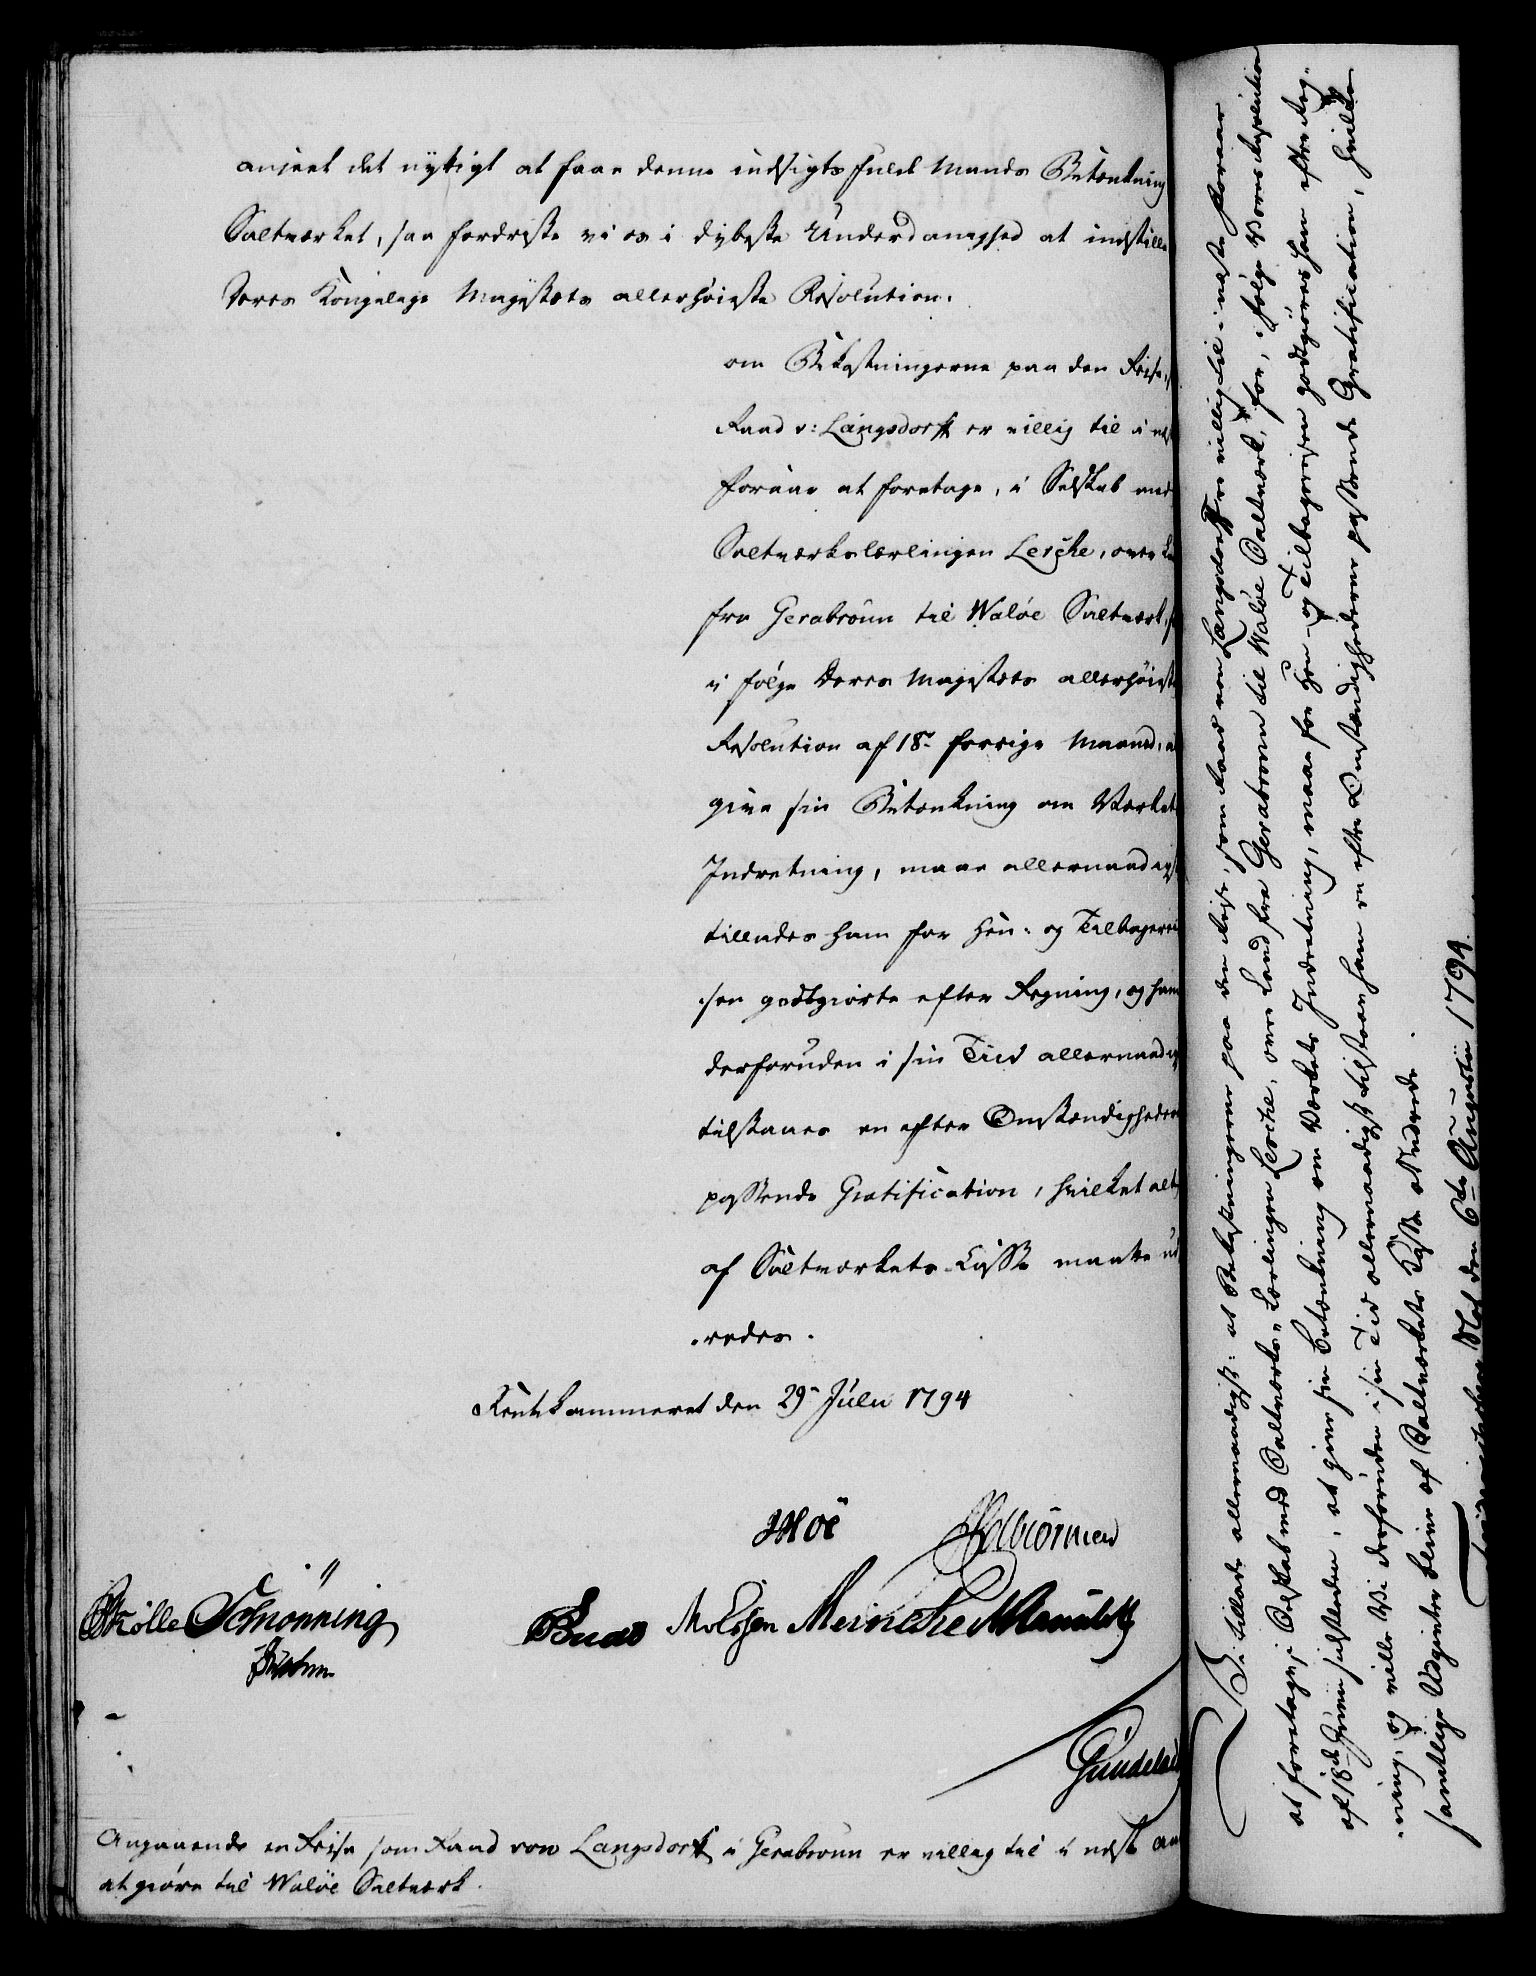 anseet det nyttigt at faae denne indsigtsfulde Mands Betænkning
Saltværket, saa fordriste vi os i dybeste Underdanighed at indstille
Deres Kongelige Majestæts allerhøieste Resolution.
om Bekostningerne paa den Reise,
Raad v: Langsdorff er villig til i næst
Foraar at foretage, i Selskab med
Saltværkslærlingen Lerche, over La
fra Gerabronn til Walöe Saltværk,
i følge Deres Majestæts allerhøieste
Resolution af 18de forrige Maaned, at
give sin Betænkning om Værkets
Indretning, maae allernaadigst
tillades ham for Hen- og Tilbagerei
sen godtgiorte efter Regning, og ham
desforuden i sin Tiid allernaadigst
tilstaaes en efter Omstændighederne
passende Gratification, hvilket alt
af Saltværkets Casse maatte ud
redes.
Rentekammeret den 29de Julii 1794
Moe
Skölle Schönning
Buds M. Essen Meincke
Angaaende en Reise som Raad von Langsdorff i Gerabronn er villig til i næst Aar
at giöre til Walöe Saltværk.
Vi tillade allernaadigst: at Bekostningerne paa den Reise, som Raad von Langsdorff er villig til i næste Foraar
at foretage, i Selskab med Saltværks-Lærlingen Lerche, over Land fra Gerabronn til Walöe Saltværk, for, i følge Vores Resolution
af 18de Junii sidstleden, at give sin Betænkning om Værkets Indretning, maae for Hen- og Tilbagereisen godtgiøres ham efter Reg-
ning, og ville Vi desforuden i sin Tid allernaadigst tilstaae ham en efter Omstændighederne passende Gratification, hvilke
samtlige Udgivter blive af Saltværkets Casse at udrede.
Slot den 6te Augusti 1794.